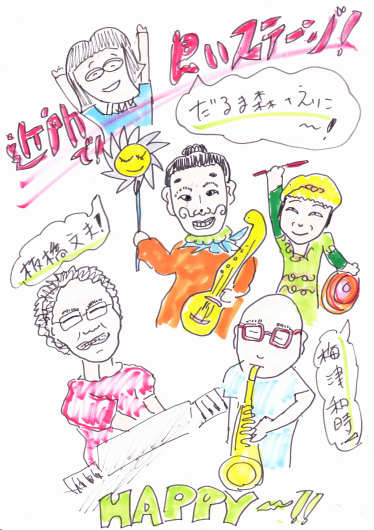 近所で
良いステージ!
だるま森+えりに
〜!
板橋文夫!
梅津和時
HAPPY〜!!